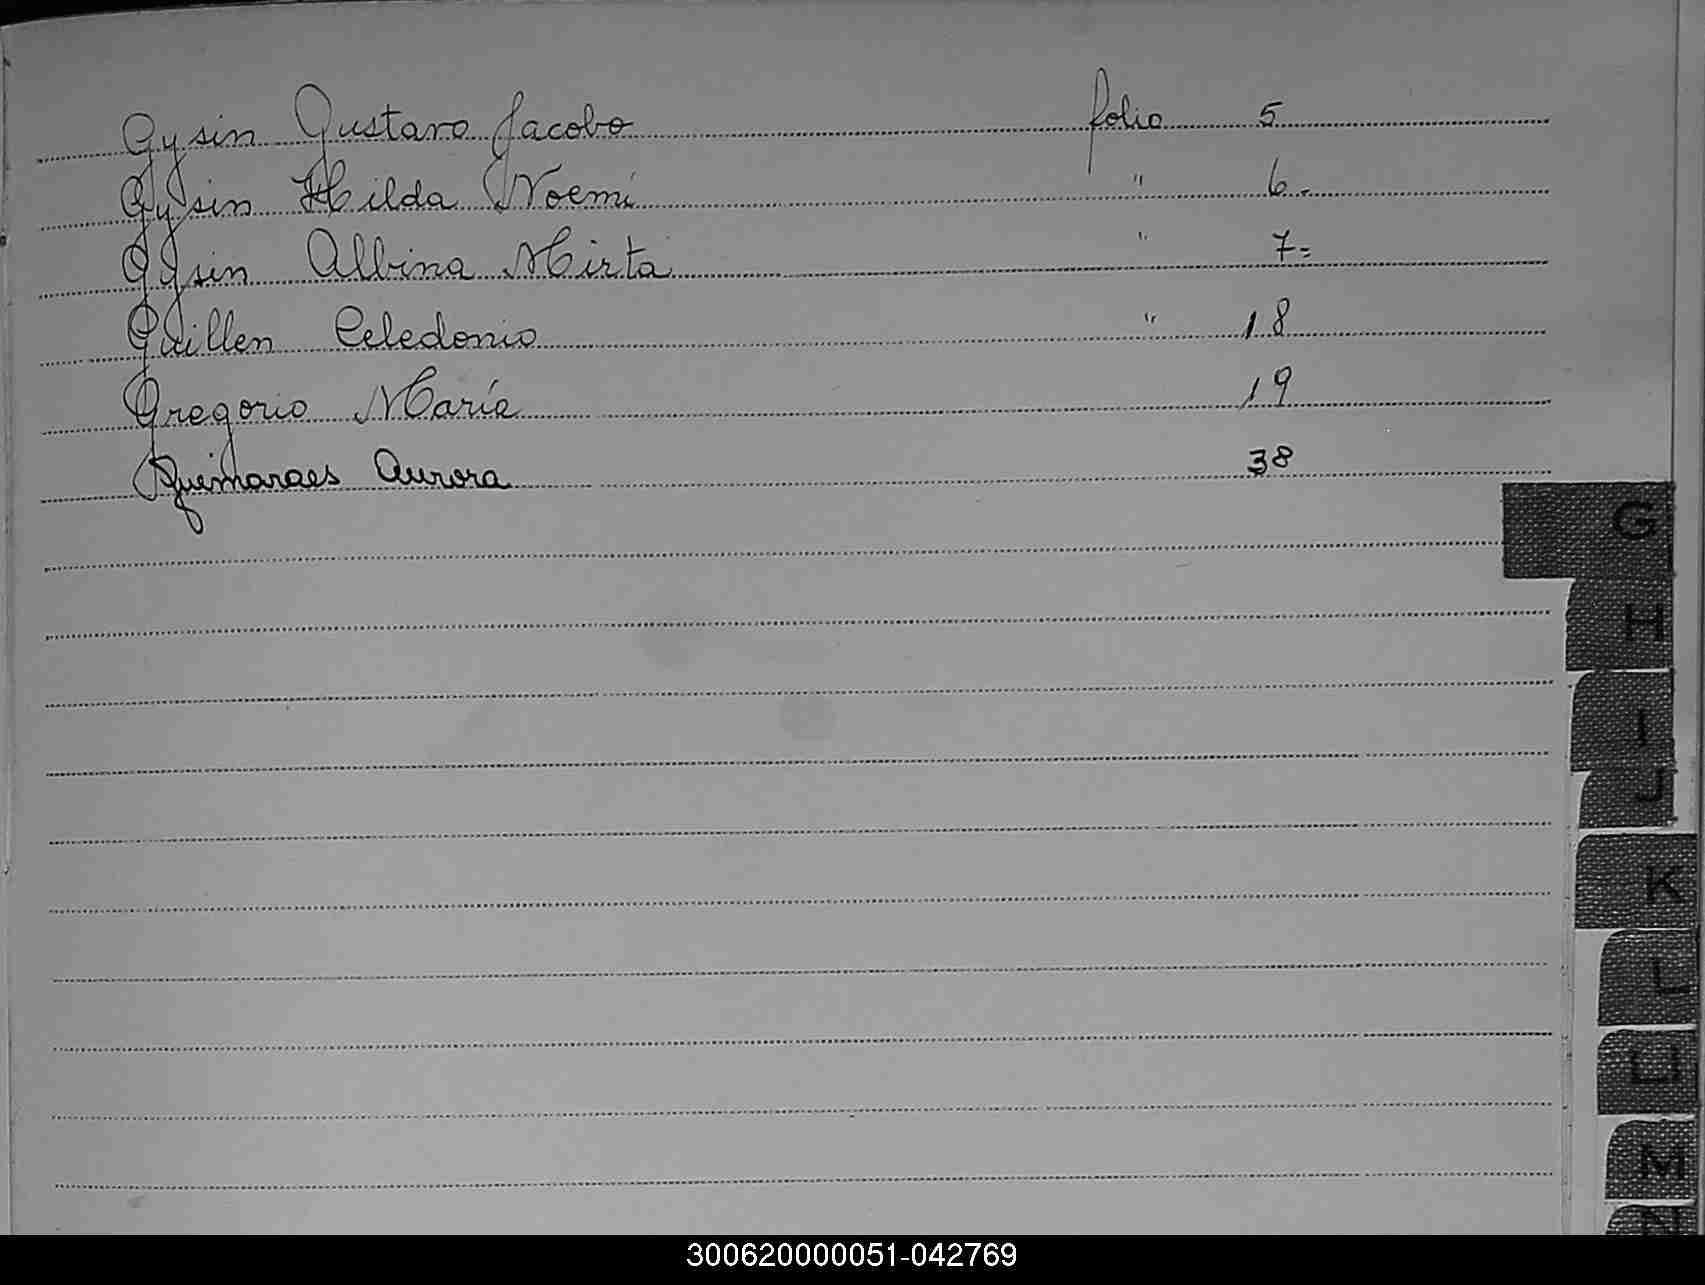 Gysin Gustavo Jacobo folio 5
Gysin Hilda Noemí " 6-
Gysin Albina Mirta " 7=
Guillen Celedonio " 18
Gregorio María 19
Guimaraes Aurora 38
G
H
I
J
K
L
LL
M
N
300620000051-042769